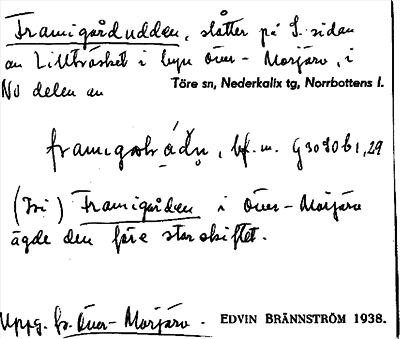 Framigårdudden, slåtter på S. sidan
av Lillträsket i byn Över-Morjärv, i
NV delen av Töre sn, Nederkalix tg, Norrbottens l.
bf. m.
(Jvi) Framigården i Över-Morjärv
ägde den före storskiftet.
Uppg. fr. Över-Morjärv. EDVIN BRÄNNSTRÖM 1938.